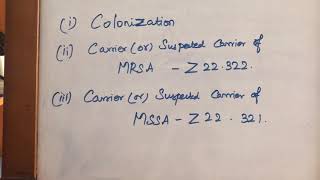 (i) Colonization
(ii) Carrier (or) Suspected Carrier of
MRSA - Z22.322.
(iii) Carrier (or) Suspected Carrier of
MSSA - Z22.321.